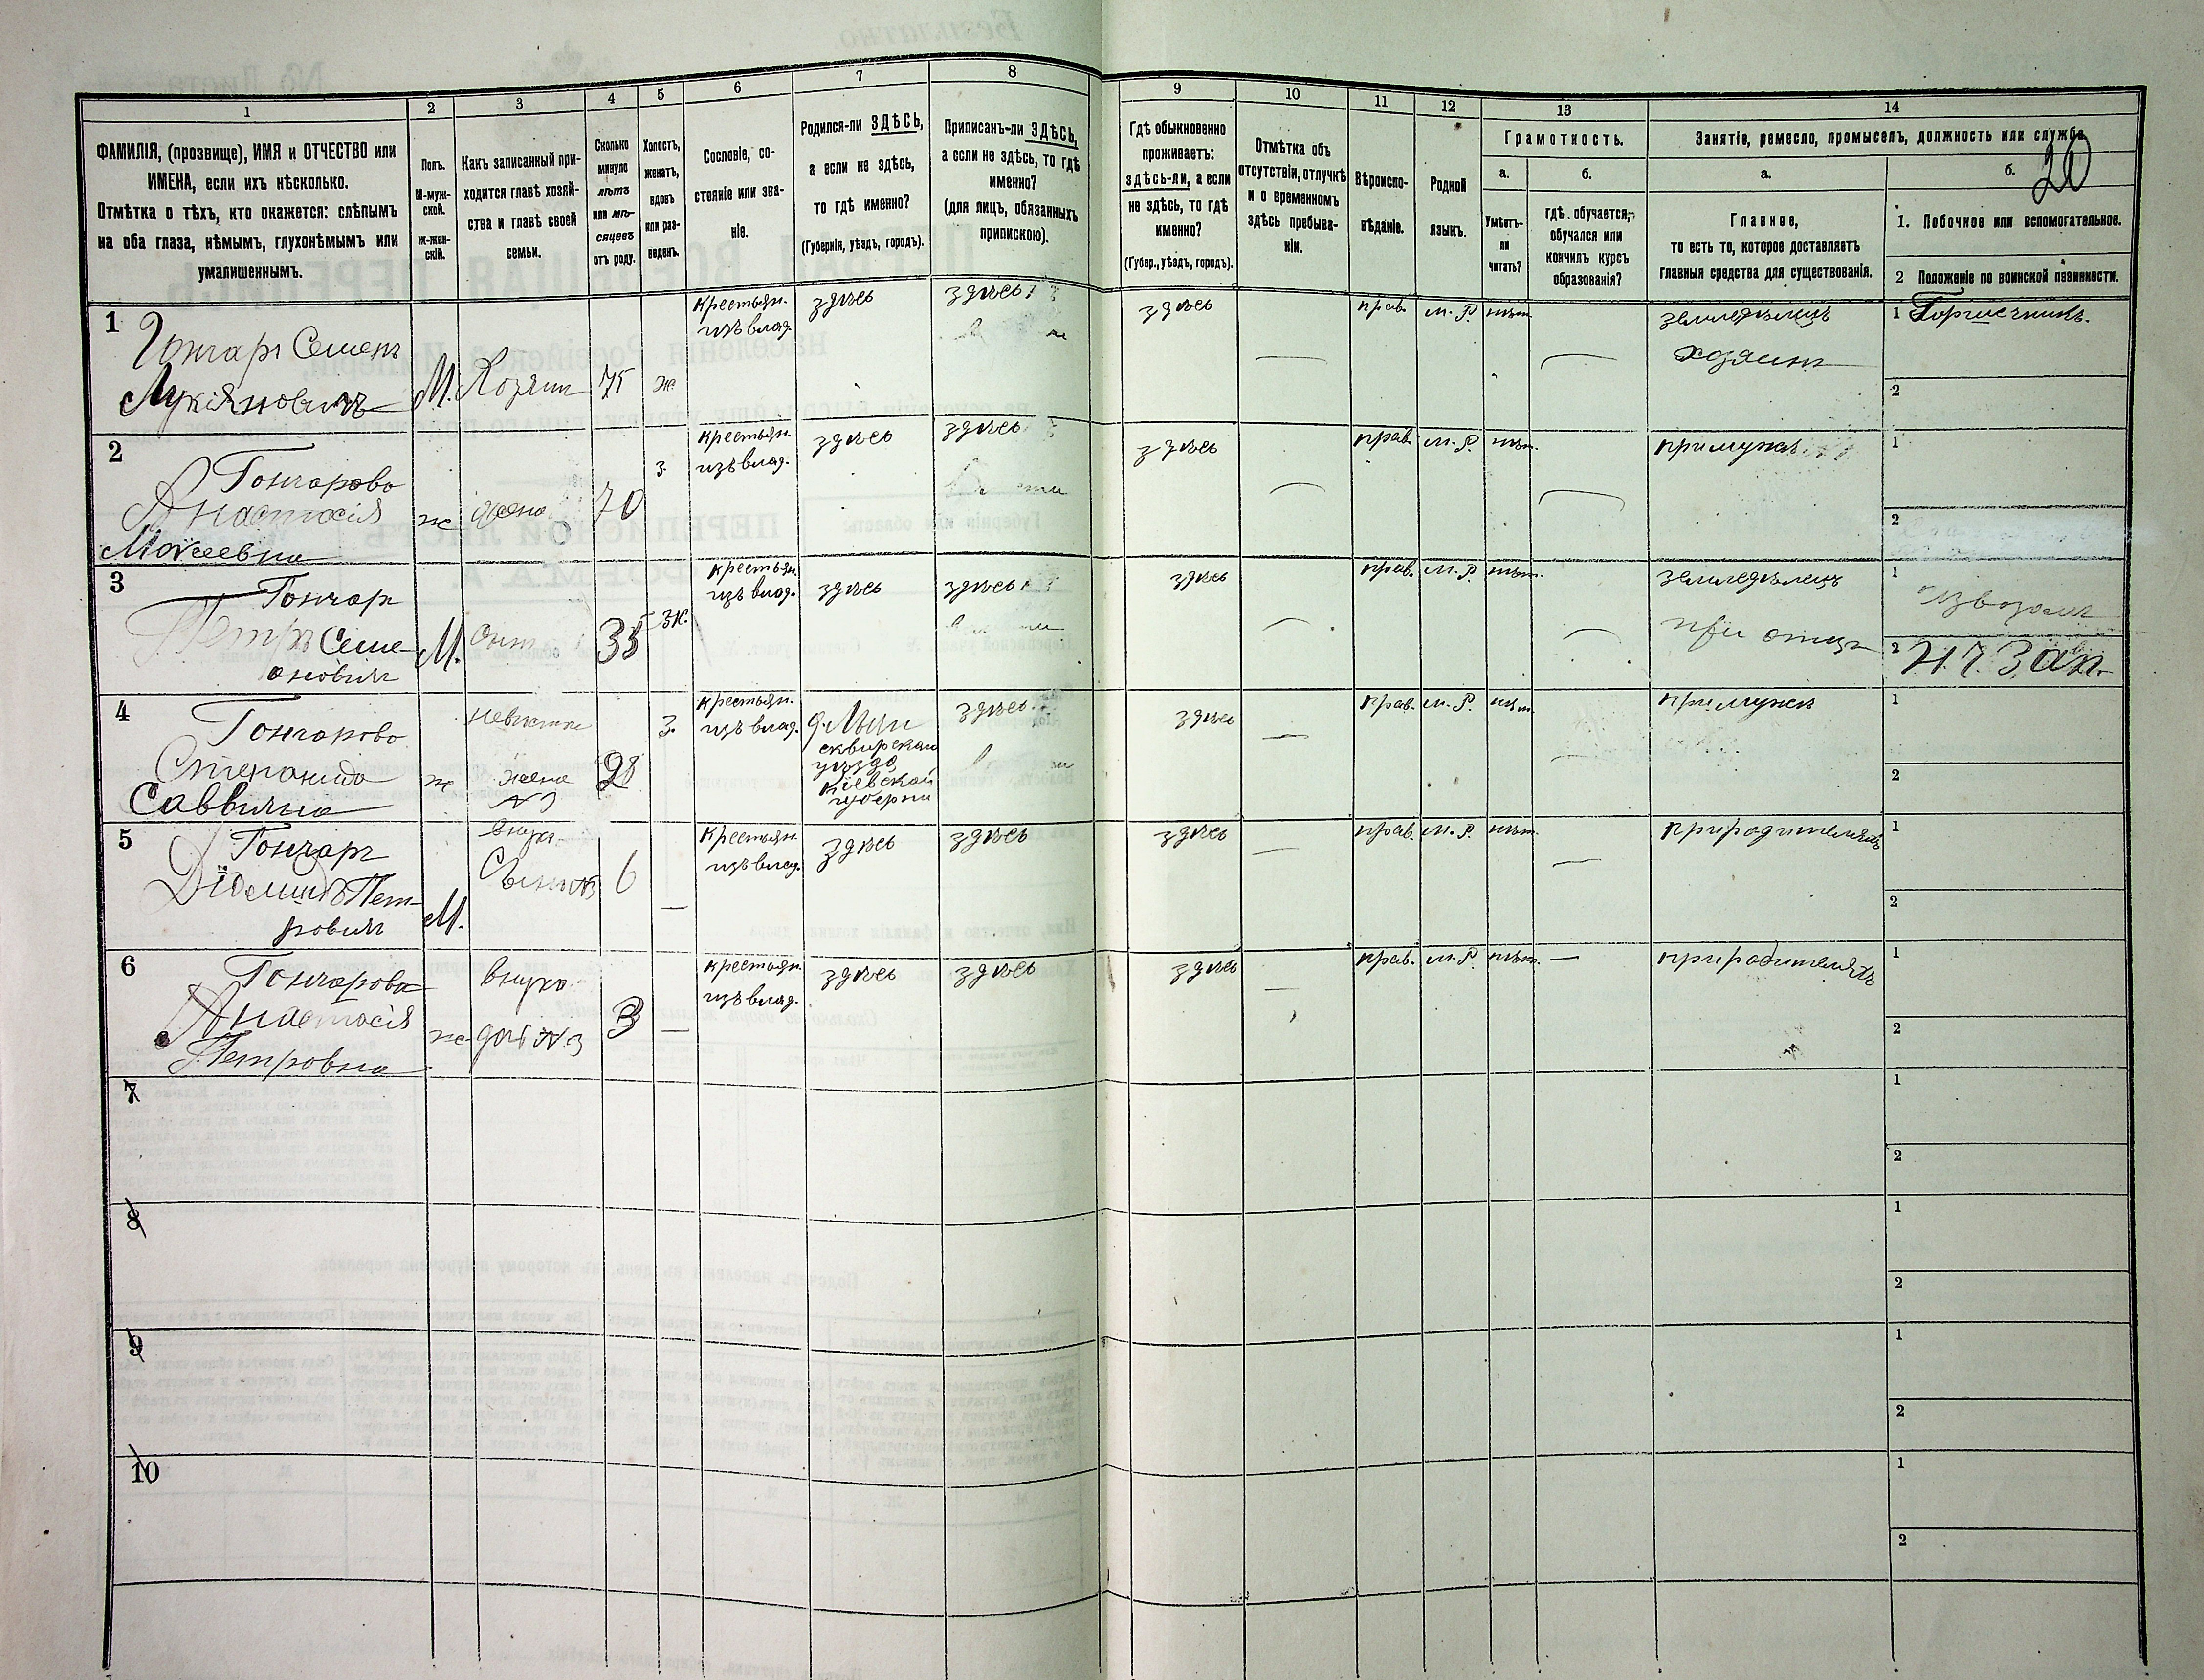 20
1
2
3
4
5
6
7
8
9
10
11
12
13
14
ФАМИЛІЯ, (прозвище), ИМЯ и ОТЧЕСТВО или
ИМЕНА, если ихъ нѣсколько.
Отмѣтка о тѣхъ, кто окажется: слѣпымъ
на оба глаза, нѣмымъ, глухонѣмымъ или
умалишеннымъ.
Полъ.
М-муж-
ской.
Ж-жен-
скій.
Какъ записанный при-
ходится главѣ хозяй-
ства и главѣ своей
семьи.
Сколько
минуло
лѣтъ
или мѣ-
сяцевъ
отъ роду.
Холостъ,
женатъ,
вдовъ
или раз-
веденъ.
Сословіе, со-
стояніе или зва-
ніе.
Родился-ли ЗДѢСЬ,
а если не здѣсь,
то гдѣ именно?
(Губернія, уѣздъ, городъ).
Приписанъ-ли ЗДѢСЬ,
а если не здѣсь, то гдѣ
именно?
(для лицъ, обязанныхъ
припискою).
Гдѣ обыкновенно
проживаетъ:
здѣсь-ли, а если
не здѣсь, то гдѣ
именно?
(Губер., уѣздъ, городъ).
Отмѣтка объ
отсутствіи, отлучкѣ
и о временномъ
здѣсь пребыва-
ніи.
Вѣроиспо-
вѣданіе.
Родной
языкъ.
Грамотность.
а.
Умѣетъ-
ли
читать?
б.
гдѣ обучается,
обучался или
кончилъ курсъ
образованія?
Занятіе, ремесло, промыселъ, должность или служба.
а.
Главное,
то есть то, которое доставляетъ
главныя средства для существованія.
б.
1. Побочное или вспомогательное.
2 Положеніе по воинской повинности.
1
Гончаръ Семенъ
Лукіяновичъ
М.
Хозяин
75
ж
крестьян.
изъ влад.
здѣсь
здѣсь
здѣсь
прав.
м. Р.
нѣт
земледѣлецъ
хозяинъ
1 Горшечникъ.
2
2
Гончарова
Анастасія
Моисеевна
ж
жена
70
з.
крестьян.
изъ влад.
здѣсь
здѣсь
здѣсь
прав.
м. Р.
нѣт.
при мужѣ
1
2
3
Гончар
Петръ Семе
оновичъ
М.
35
ж.
крестьян.
изъ влад.
здѣсь
здѣсь
здѣсь
прав.
м. Р.
нѣт.
земледѣлецъ
при отцѣ
1
извозомъ
2
4
Гончарова
Степанида
Саввична
ж
невѣстка
жена
№ 3
28
з.
крестьян.
изъ влад.
сквирскаго
уѣзда
Кіевской
губерни
здѣсь
здѣсь
прав.
м. Р.
нѣт.
при мужѣ
1
2
5
Гончаръ
Пет-
ровичъ
М.
внукъ
Сынъ №3
6
—
крестьян.
изъ влад.
здѣсь
здѣсь
здѣсь
—
прав.
м. Р.
нѣт.
—
при родителяхъ
1
2
6
Гончарова
Анастасія
Петровна
ж
внука
доч №3
3
—
крестьян.
изъ влад.
здѣсь
здѣсь
здѣсь
—
прав.
м. Р.
нѣт.
—
при родителяхъ
1
2
7
1
2
8
1
2
9
1
2
10
1
2